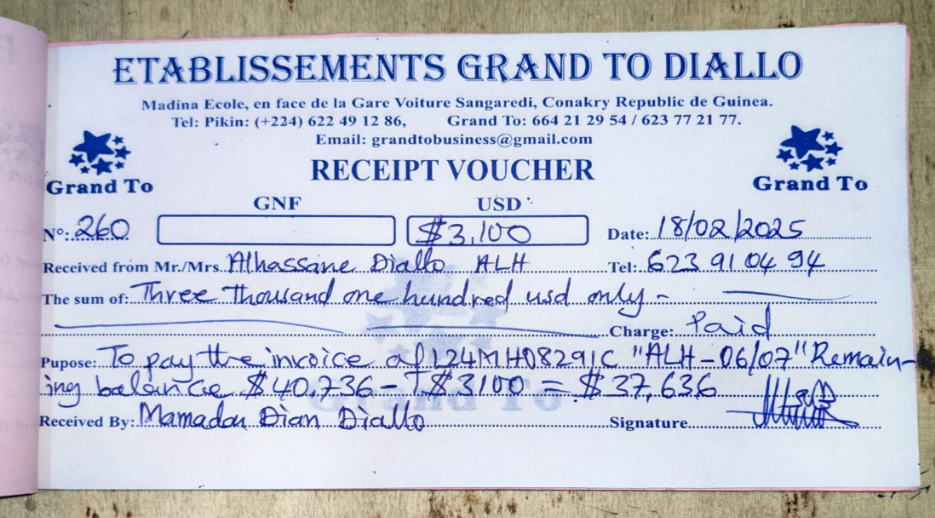 ETABLISSEMENTS GRAND TO DIALLO
Madina Ecole, en face de la Gare Voiture Sangaredi, Conakry Republic de Guinea.
Tel: Pikin: (+224) 622 49 12 86, Grand To: 664 21 29 54 / 623 77 21 77.
Email: grandtobusiness@gmail.com
Grand To RECEIPT VOUCHER Grand To
GNF USD
N°: 260 $3,100 Date: 18/02/2025
Received from Mr./Mrs. Alhassane Diallo ALH Tel: 623 91 04 94
The sum of: Three thousand one hundred usd only -
Charge: Paid
Pupose: To pay the invoice of L24MH08291C "ALH-06/07" Remain-
ing balance $40,736 - $3100 = $37,636
Received By: Mamadou Dian Diallo Signature